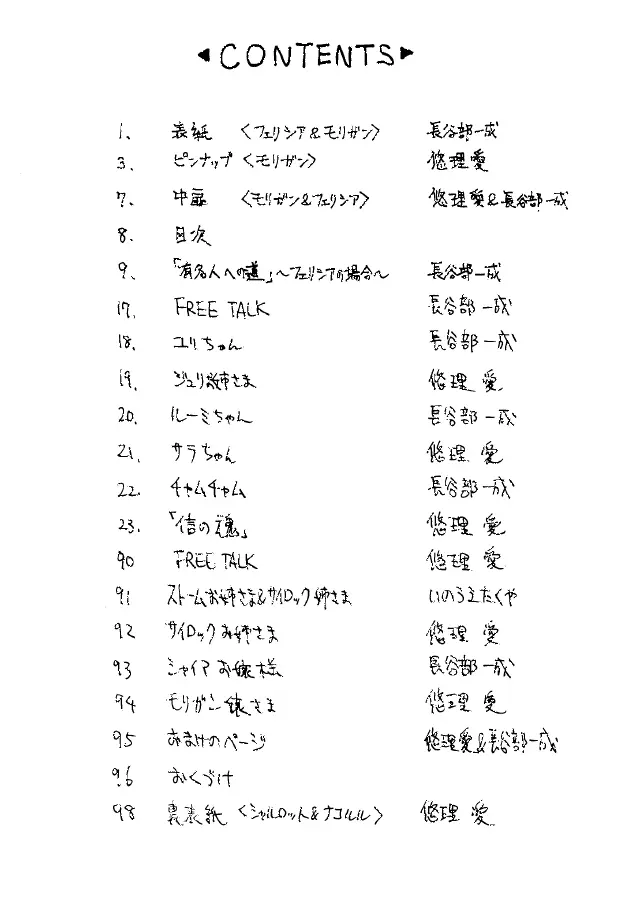 ◀CONTENTS▶
1、 表紙 〈フェリシア&モリガン〉 長谷部一成
3、 ピンナップ〈モリガン〉 悠理愛
7、 中扉 〈モリガン&フェリシア〉 悠理愛&長谷部一成
8、 目次
9、 「有名人への道」～フェリシアの場合～ 長谷部一成
17、 FREE TALK 長谷部一成
18、 ユリちゃん 長谷部一成
19、 ジュリ姉さま 悠理 愛
20、 ルーミちゃん 長谷部一成
21、 サラちゃん 悠理 愛
22. チャムチャム 長谷部一成
23. 「信の魂」 悠理 愛
90 FREE TALK 悠理 愛
91 ストームお姉さま&サイロック姉さま いのうえたくや
92 サイロックお姉さま 悠理 愛
93 シャイアお嬢様 長谷部一成
94 モリガン嬢さま 悠理 愛
95 おまけのページ 悠理愛&長谷部一成
96 おくづけ
98 裏表紙〈シャルロット&ナコルル〉 悠理 愛